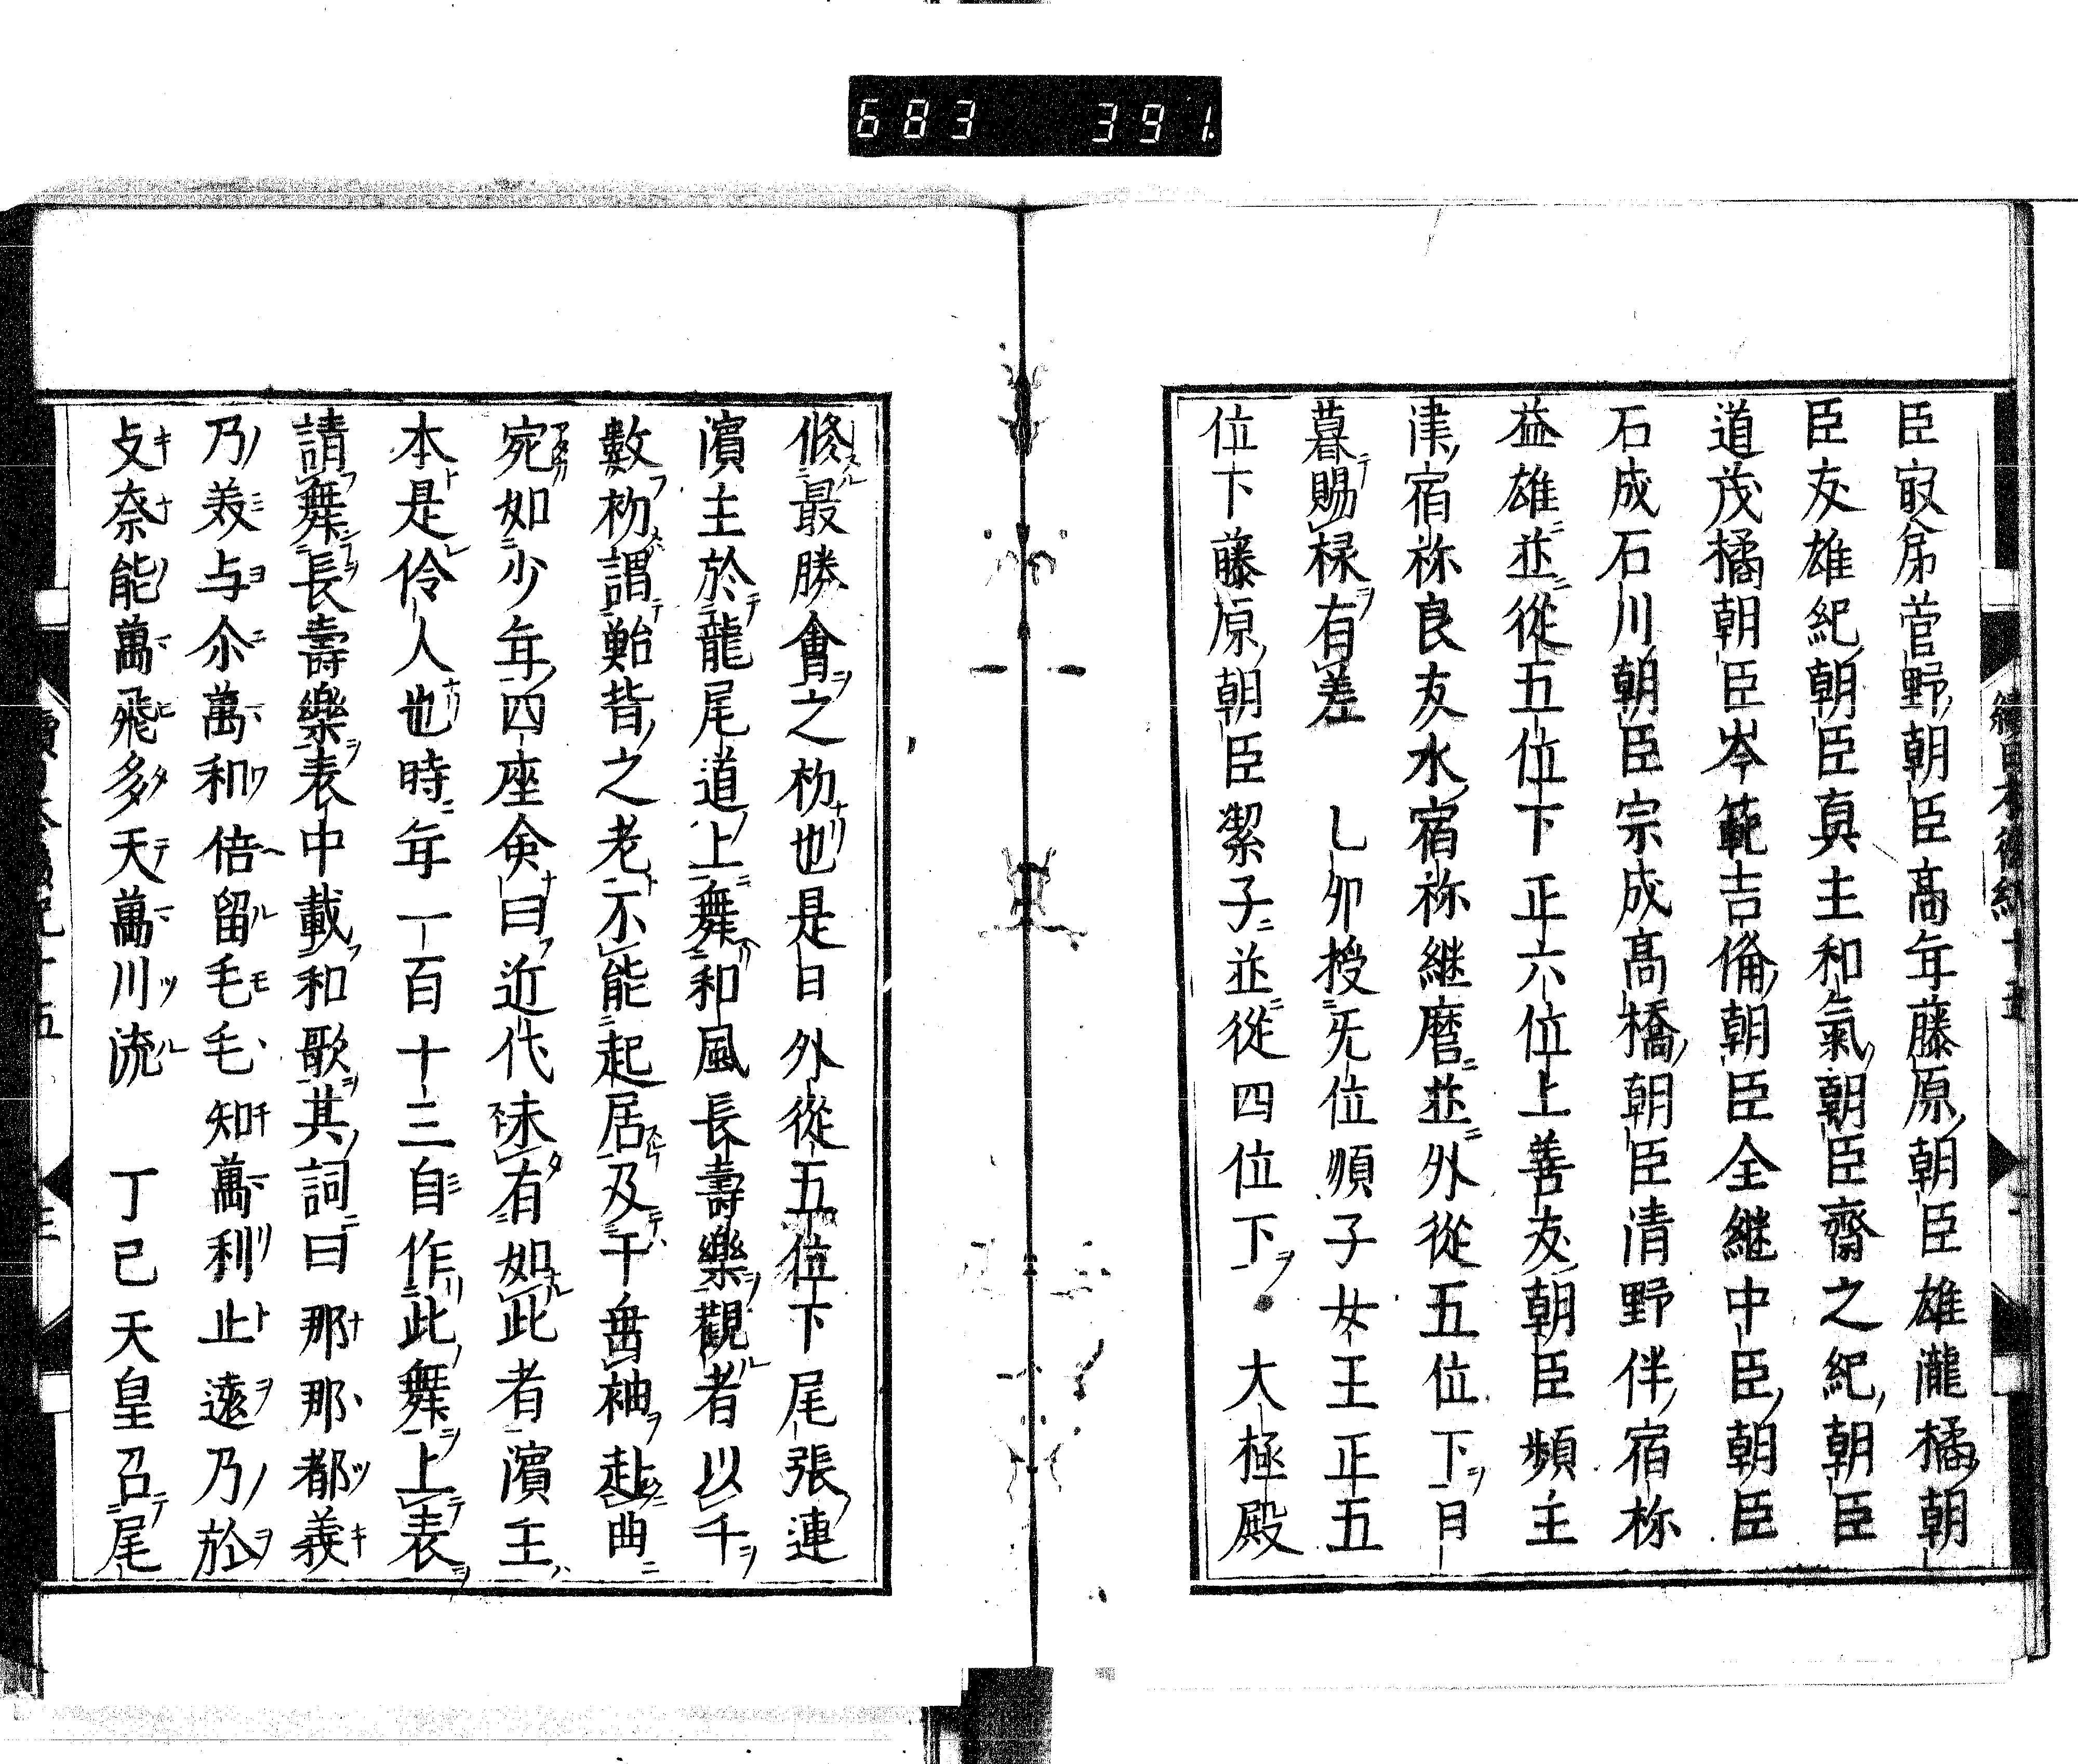 683 391
臣宼弟菅野朝臣高年藤原朝臣雄瀧橘朝
臣友雄紀朝臣真主和氣朝臣齋之紀朝臣
道茂橘朝臣岑範吉備朝臣全継中臣朝臣
石成石川朝臣宗成高橋朝臣清野伴宿祢
益雄並從五位下正六位上善友朝臣頴主
津宿祢良友水宿祢継麿並外從五位下日
暮賜禄有差 乙卯授无位順子女王正五
位下藤原朝臣潔子並從四位下 大極殿
修最勝會之初也是日外從五位下尾張連
濱主於龍尾道上舞和風長壽樂觀者以千
數初謂鮐背之老不能起居及于垂袖赴曲
宛如少年四座僉曰近代未有如此者濱主
本是伶人也時年一百十三自作此舞上表
請舞長壽樂表中載和歌其詞曰 那那都義
乃美与尓萬和倍留毛毛知萬利止遠乃於
支奈能萬飛多天萬川流 丁巳天皇召尾